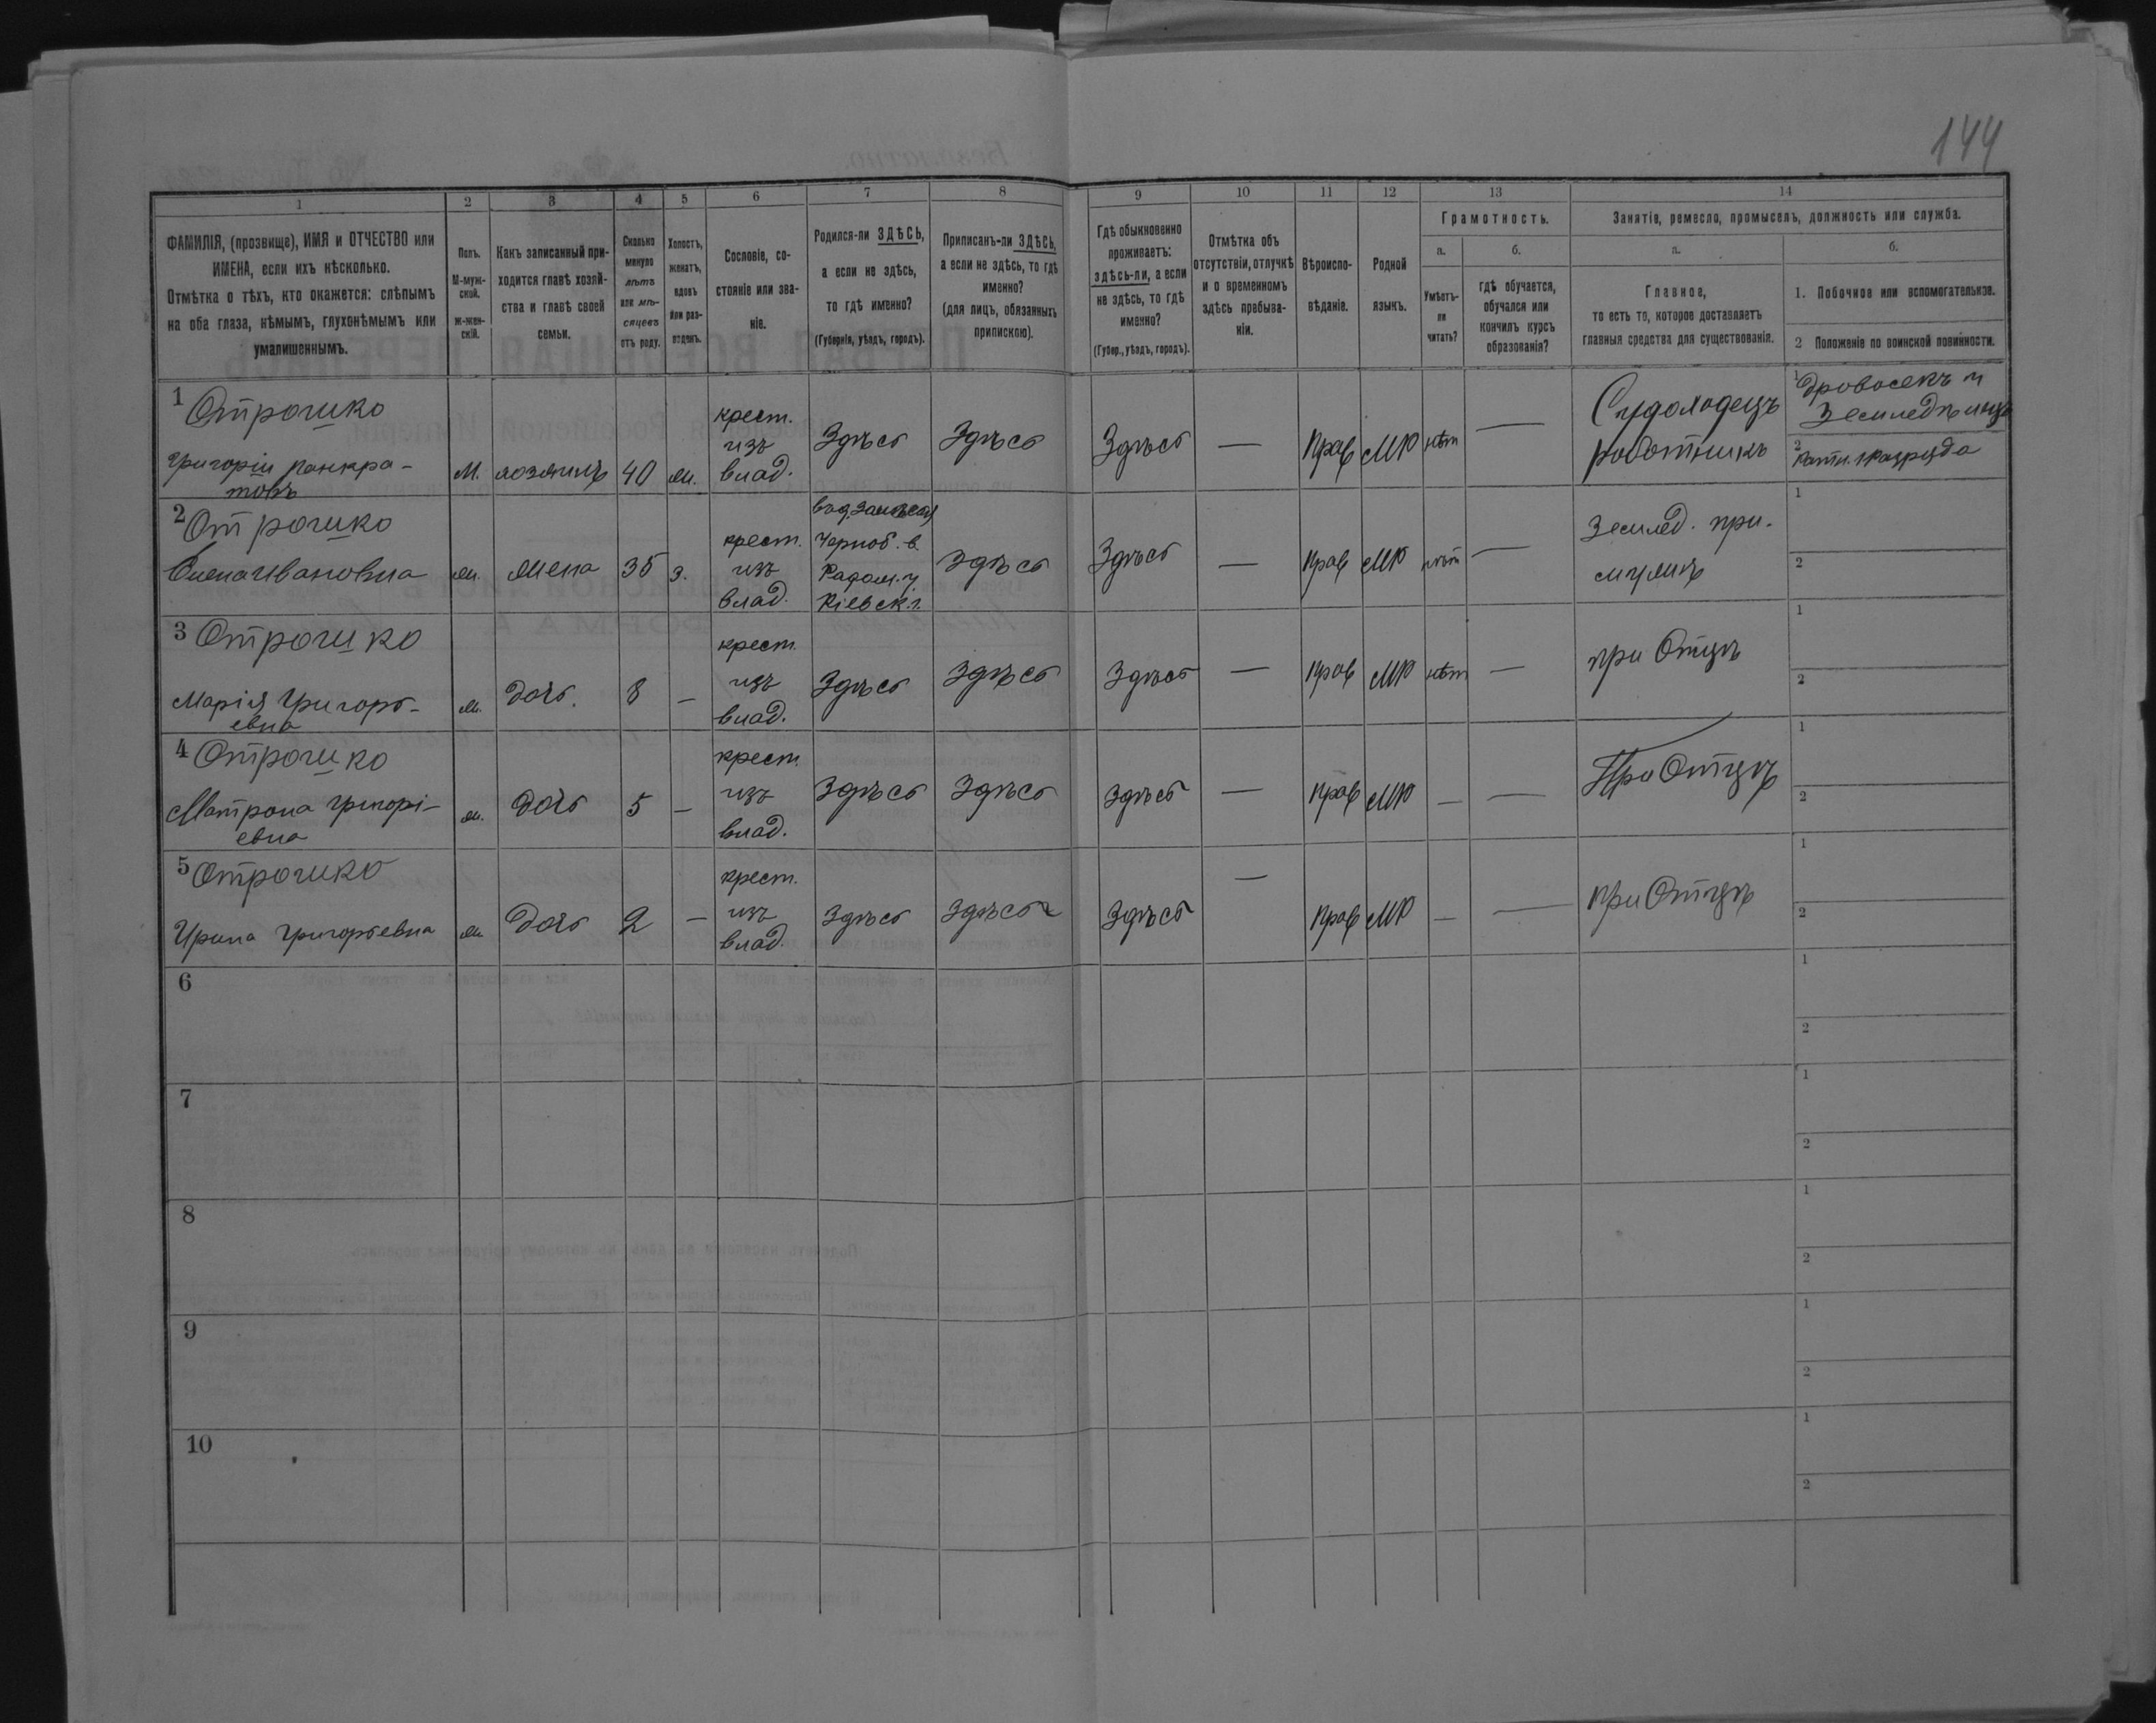 144
1
2
3
4
5
6
7
8
9
10
11
12
13
14
ФАМИЛІЯ, (прозвище), ИМЯ и ОТЧЕСТВО или
ИМЕНА, если ихъ нѣсколько.
Отмѣтка о тѣхъ, кто окажется: слѣпымъ
на оба глаза, нѣмымъ, глухонѣмымъ или
умалишеннымъ.
Полъ.
М-муж-
ской.
ж-жен-
скій.
Какъ записанный при-
ходится главѣ хозяй-
ства и главѣ своей
семьи.
Сколько
минуло
лѣтъ
или мѣ-
сяцевъ
отъ роду.
Холостъ,
женатъ,
вдовъ
или раз-
веденъ.
Сословіе, со-
стояніе или зва-
ніе.
Родился-ли ЗДѢСЬ,
а если не здѣсь,
то гдѣ именно?
(Губернія, уѣздъ, городъ).
Приписанъ-ли ЗДѢСЬ,
а если не здѣсь, то гдѣ
именно?
(для лицъ, обязанныхъ
припискою).
Гдѣ обыкновенно
проживаетъ:
здѣсь-ли, а если
не здѣсь, то гдѣ
именно?
(Губер., уѣздъ, городъ).
Отмѣтка объ
отсутствіи, отлучкѣ
и о временномъ
здѣсь пребыва-
ніи.
Вѣроиспо-
вѣданіе.
Родной
языкъ.
Грамотность.
а.
б.
Умѣетъ-
ли
читать?
гдѣ обучается,
обучался или
кончилъ курсъ
образованія?
Занятіе, ремесло, промыселъ, должность или служба.
а.
б.
Главное,
то есть то, которое доставляетъ
главныя средства для существованія.
1. Побочное или вспомогательное.
2 Положеніе по воинской повинности.
1 Отрошко
Григорій Панкра-
товъ
М. хозяинъ 40 ж.
крест.
изъ
влад.
Здѣсь Здѣсь Здѣсь — Прав МР нѣт —
Судоходецъ
работникъ
1 Дровосекъ и
Земледѣлецъ
2 Ратн. 1 разряда
2 Отрошко
Елена Ивановна
ж. жена 35 з.
крест.
изъ
влад.
Черноб. в.
Радом. у.
Кіевск. г.
Здѣсь Здѣсь — Прав МР нѣт —
Землед. при
мужѣ
1
2
3 Отрошко
Марія Григорь-
евна
ж. дочь. 8 —
крест.
изъ
влад.
Здѣсь Здѣсь Здѣсь — Прав МР нѣт —
при Отцѣ
1
2
4 Отрошко
Матрона Григорі-
евна
ж. дочь 5 —
крест.
изъ
влад.
Здѣсь Здѣсь Здѣсь — Прав МР — —
При Отцѣ
1
2
5 Отрошко
Ирина Григорьевна
ж. дочь 2 —
крест.
изъ
влад.
Здѣсь Здѣсь Здѣсь — Прав МР — —
при Отцѣ
1
2
6
1
2
7
1
2
8
1
2
9
1
2
10
1
2